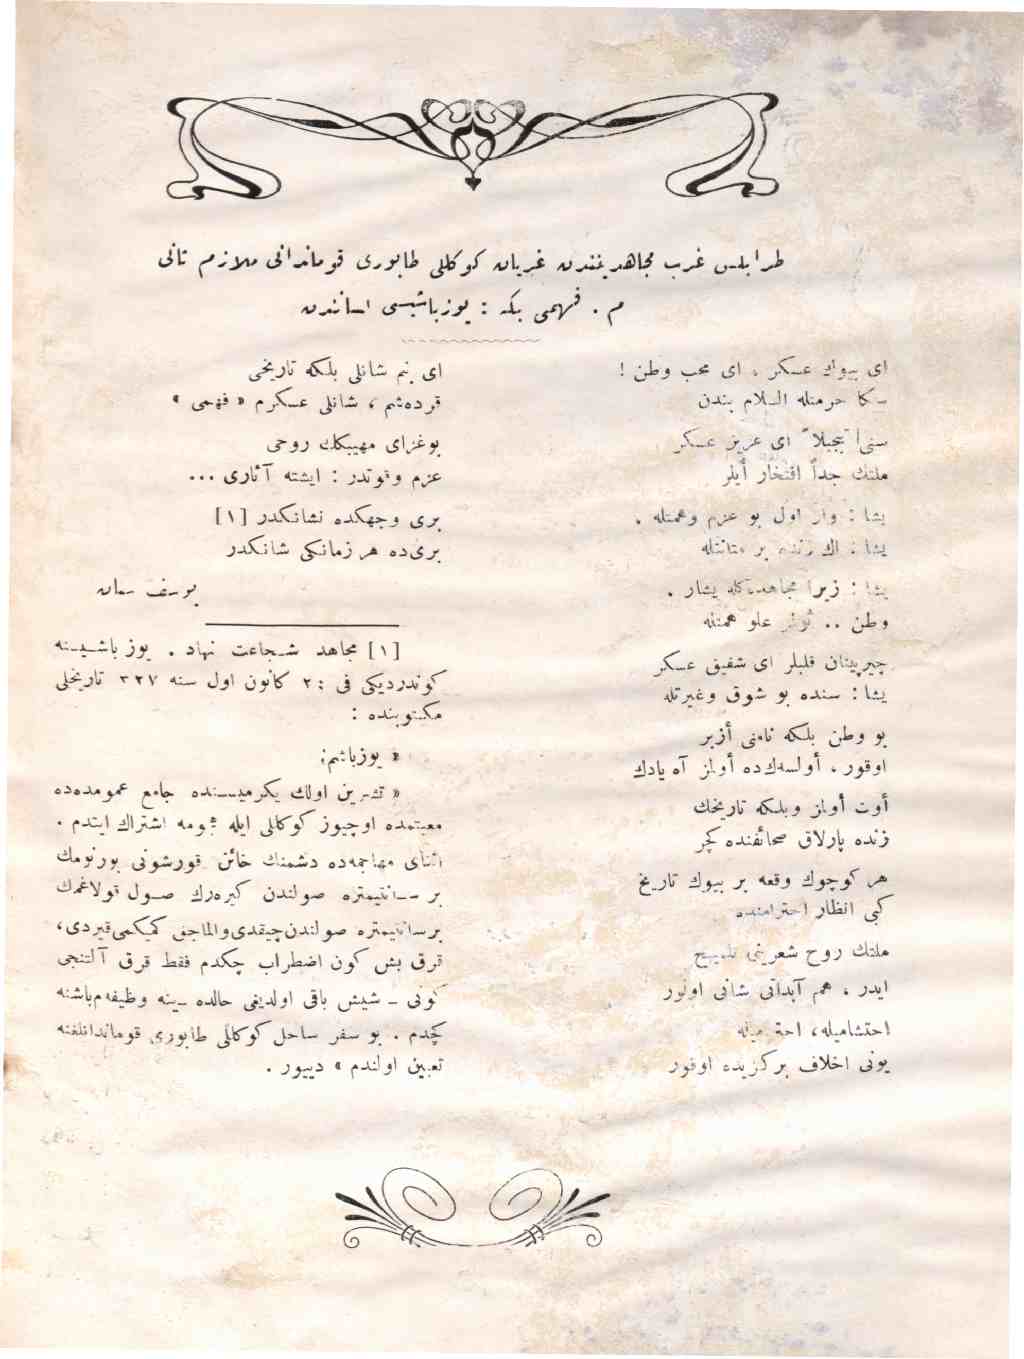 طرابلس غرب مجاهدیندن غریان کوکللی طابوری قوماندانی ملازم ثانی
م . فهمی بکه : یوزباشیسی لسانندن
ای بیوك عسکر ، ای محب وطن !
سکا حرمتله السلام بندن
سنی تبجیلاً ای عزیز عسکر
ملتك جداً افتخار أیلر
یشا : وار اول بو عزم وهمتله .
یشا : اك زنده بر متانتله
یشا : زیرا مجاهدتکله یشار .
وطن .. علو همتله
چیرپینان قلبلر ای شفیق عسکر
یشا : سنده بو شوق وغیرتله
بو وطن بلکه نامنی أزبر
اوقور ، أولسه‌ك‌ده أولمز آه یادك
أوت أولمز وبلکه تاریخك
زنده پارلاق صحائفنده کچر
هر کوچوك وقعه بر بیوك تاریخ
کبی انظار احترامنده
ملتك روح شعرینی تلمیح
ایدر ، هم آبداتی شانی اولور
احتشامیله ، احترامیله
بونی اخلاف برکزیده اوقور
ای بنم شانلی بلکه تاریخی
قرده‌شم ، شانلی عسکرم « فهمی »
بوغزای مهیبکك روحی
عزم وقوتدر : ایشته آثاری ...
بری وجهکده نشانکدر [١]
بری‌ده هر زمانکی شانکدر
یوسف سمان
[١] مجاهد شجاعت نهاد . یوز باشیسنه
کوندردیکی فی ٢ کانون اول سنه ٣٢٧ تاریخلی
مکتوبنده :
« یوزباشم;
« تشرین اولك یکرمیسنده جامع عمومده‌ده
معیتمده اوچیوز کوکللی ایله هجومه اشتراك ایتدم .
اثنای مهاجمه‌ده دشمنك خائن قورشونی بورنومك
بر سانتیمتره صولندن کیره‌رك صول قولاغمك
برسانتیمتره صولندن‌چیقدی‌والماجق کمیکمی‌قیردی،
قرق بش کون اضطراب چکدم فقط قرق آلتنجی
کونی ـ شیش باقی اولدیغی حالده ـ ینه وظیفه‌م‌باشنه
کچدم . بو سفر ساحل کوکللی طابوری قوماندانلغنه
تعیین اولندم » دییور .